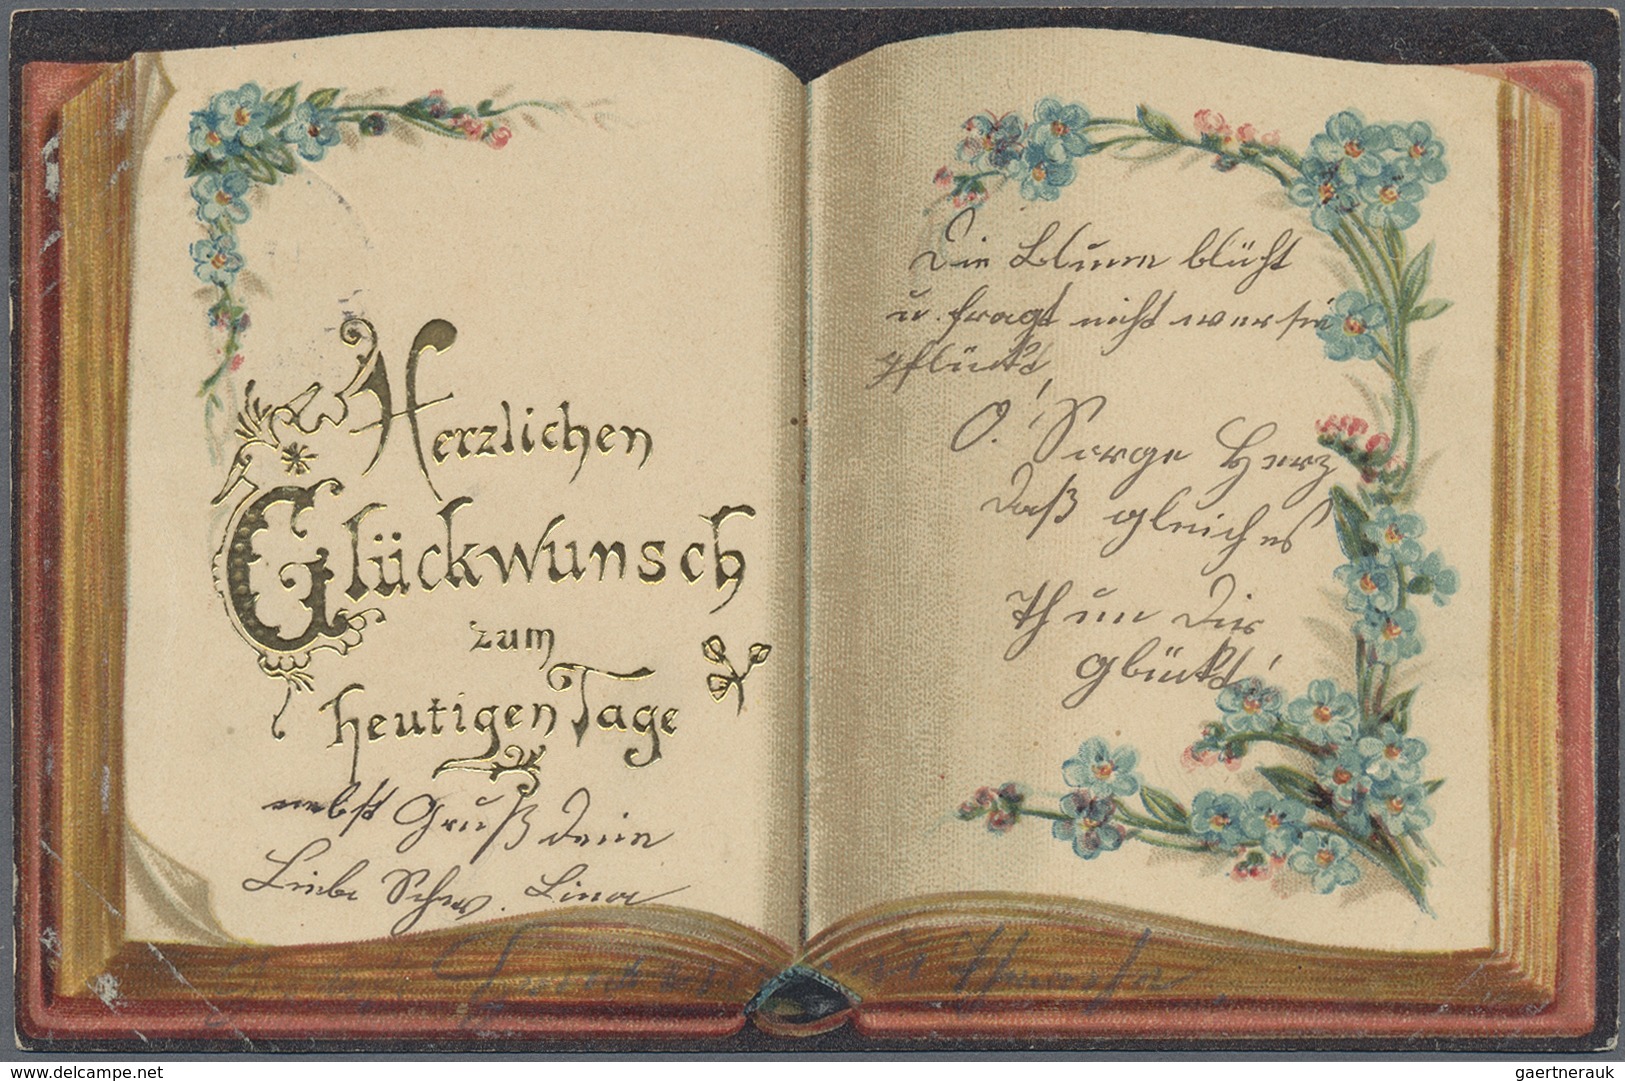 Herzlichen
Glückwunsch
zum
heutigen Tage
nebst Gruß deine
Liebe Schw. Lina
Die Blume blüht
u. fragt nicht wer sie
pflückt,
O! Sorge Herz
daß gleich es
Thun Dir
glückt!
delcampe.net
gaertnerauk